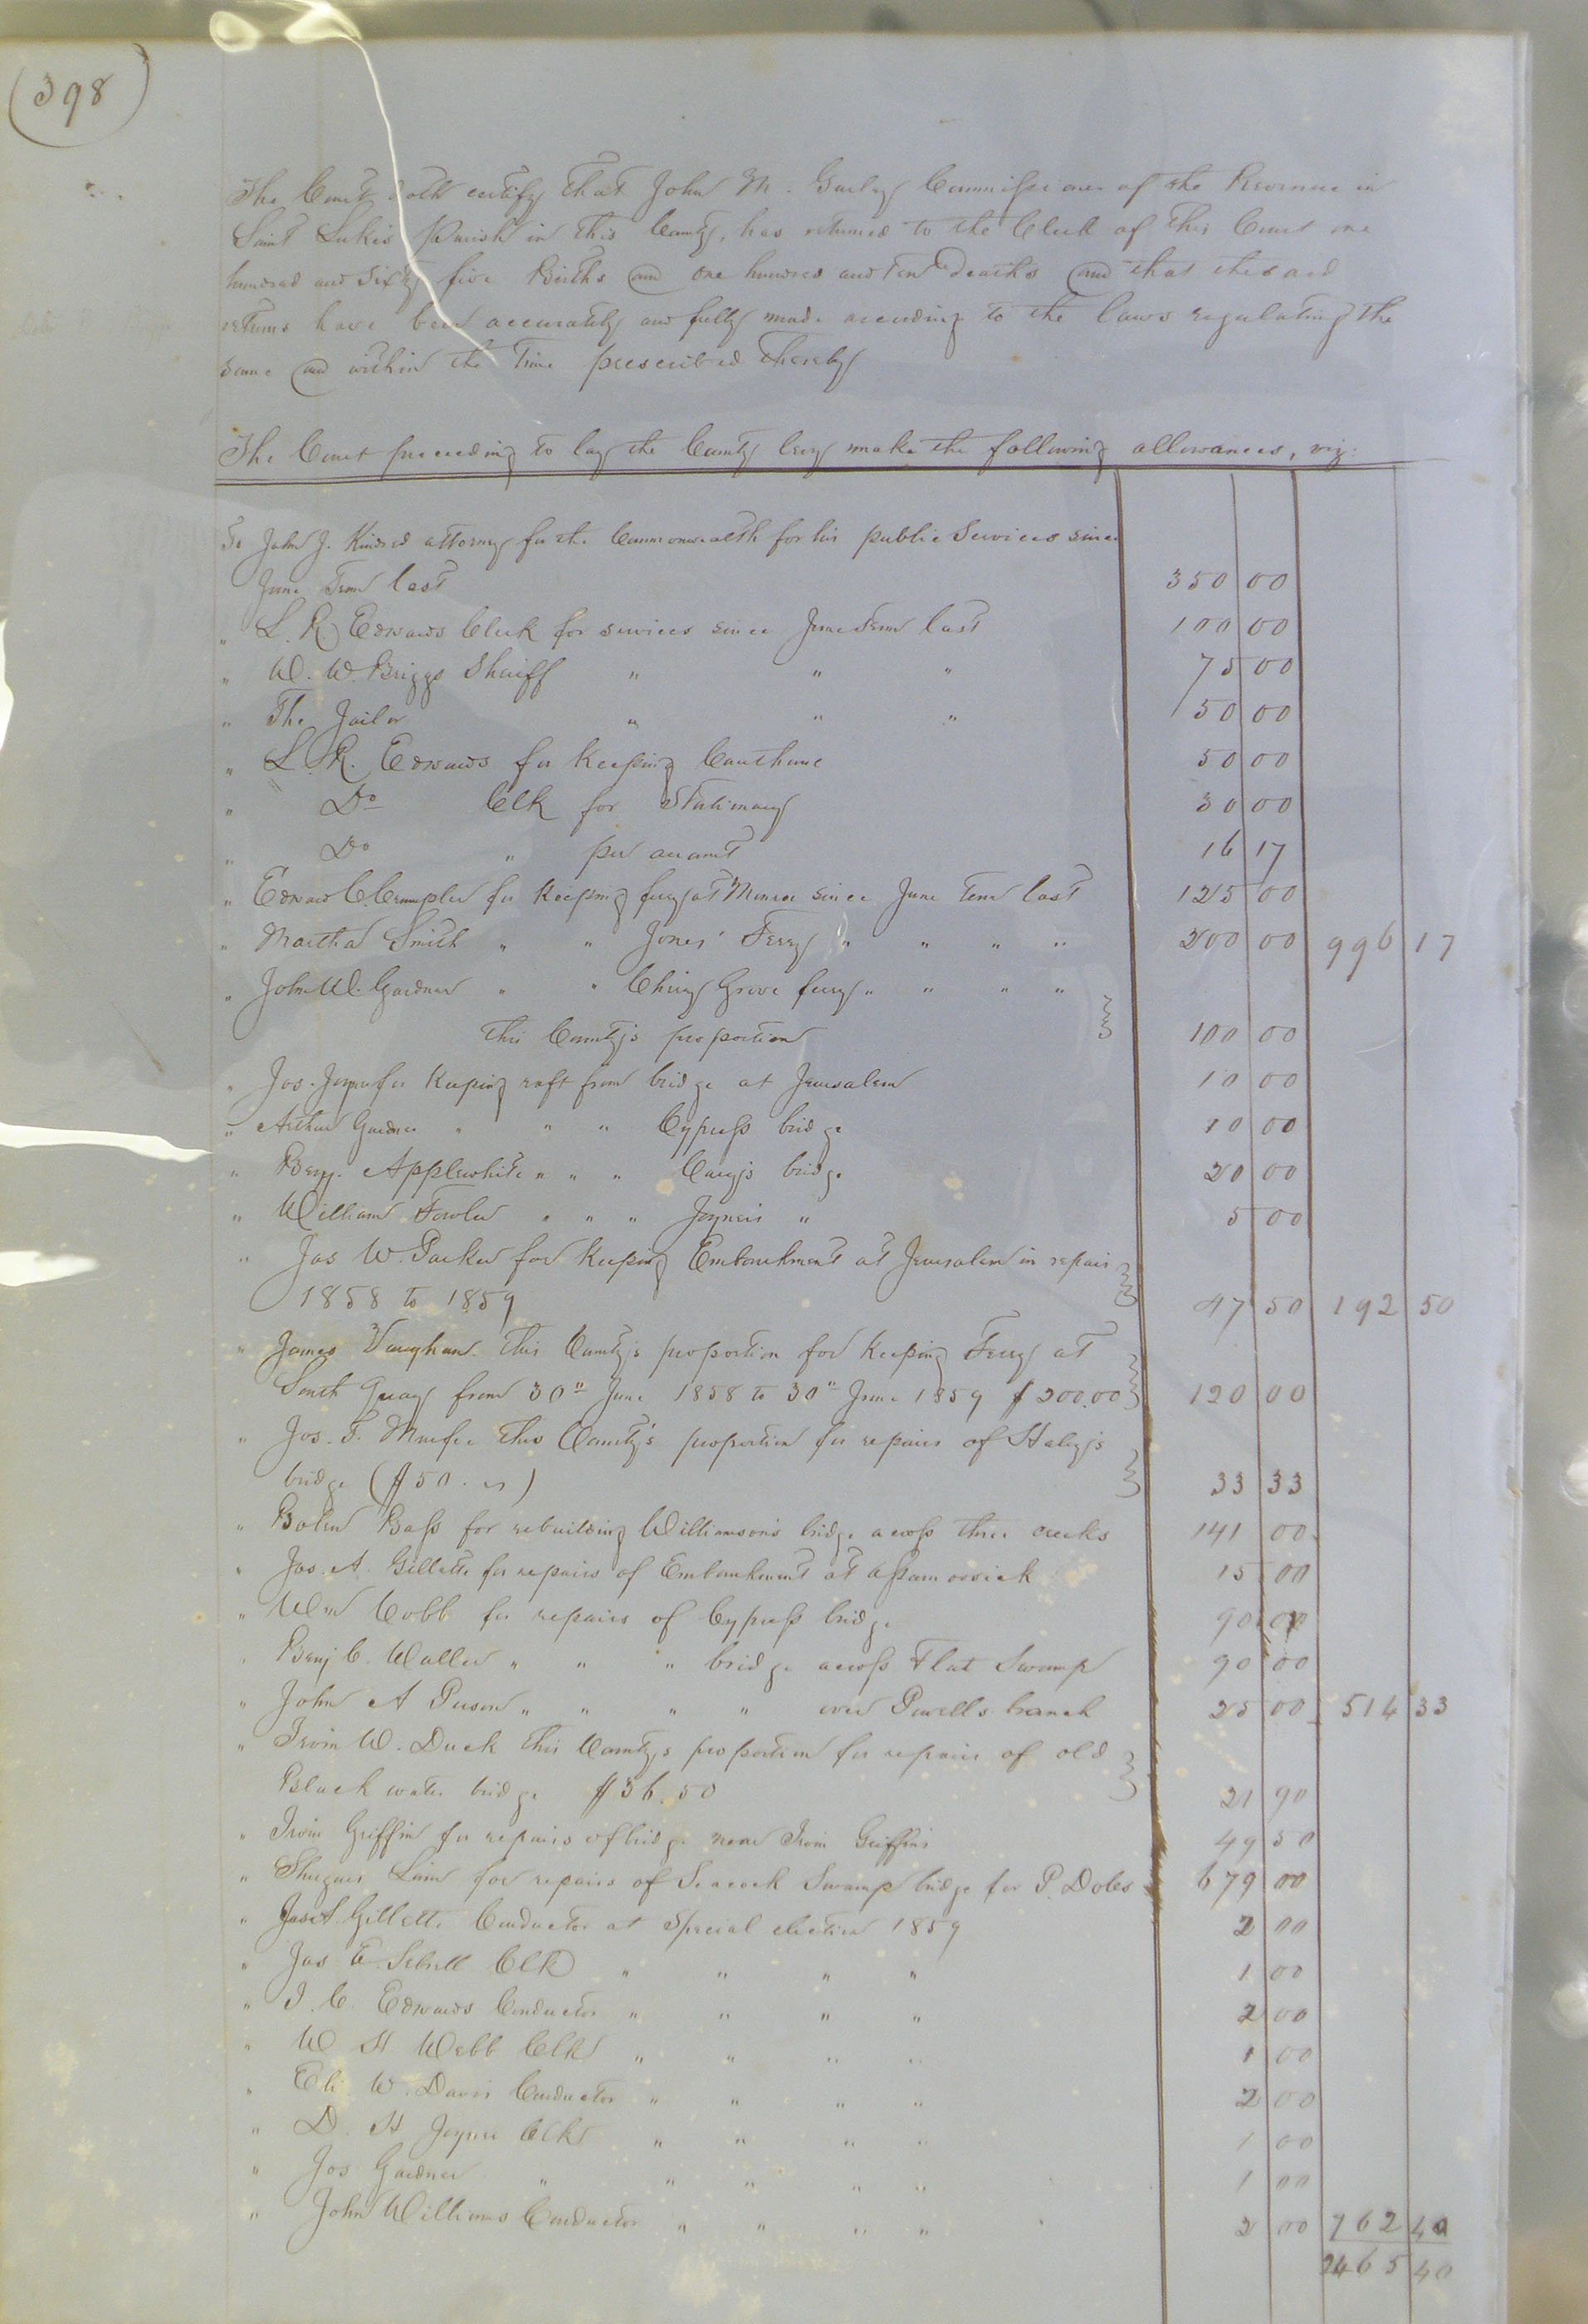 (398)
The Court doth certify that John M. Gurley Commissioner of the Revenue in
Saint Luke's Parish in this County, has returned to the Clerk of this Court one
hundred and Sixty five Births and one hundred and ten deaths and that the said
returns have been accurately and fully made according to the laws regulating the
same and within the time prescribed thereby
The Court proceeding to lay the County levy make the following allowances, viz:
To John J. Kindred attorney for the Commonwealth for his public Services since
June Term last 350 00
" L. R. Edwards Clerk for services since June Term last 100 00
" W. W. Briggs Sheriff " " " 75 00
" The Jailor " " " 50 00
" L. R. Edwards for Keeping Courthouse 50 00
" Do Clk for Stationary 30 00
" Do " per account 16 17
" Edward C. Crumpler for Keeping ferry at Monroe since June term last 125 00
" Martha Smith " " Jones' Ferry " " " " 200 00 996 17
" John W. Gardner " " Cherry Grove ferry " " " "
this County's proportion 100 00
" Jos. Joyner for Keeping raft from bridge at Jerusalem 10 00
" Arthur Gardner " " " Cypress bridge 10 00
" Benj. Applewhite " " " Cary's bridge 20 00
" William Fowler " " " Joyner's " 5 00
" Jas W. Parker for Keeping Embankment at Jerusalem in repair
1858 to 1859 47 50 192 50
" James Vaughan this County's proportion for Keeping Ferry at
South Quay from 30" June 1858 to 30" June 1859 $200.00 120 00
" Jos. F. this County's proportion for repairs of Haley's
bridge ($50. ) 33 33
" Bolen Bass for rebuilding Williamson's bridge across three creeks 141 00
" Jas. A. Gillette for repairs of Embankment at Assamoosick 15 00
" Wm Cobb for repairs of Cypress bridge 90 00
" Benj C. Waller " " " bridge across Flat Swamp 90 00
" John A " " " " over Powell's branch 25 00 514 33
" Irvin W. Duck this County's proportion for repairs of old
Black water bridge $36.50 21 90
" Irvin Griffin for repairs of bridge near Irvin Griffins 49 50
" for repairs of Seacock Swamp bridge for P. Doles 679 00
" Jas A. Gillette Conductor at Special election 1859 2 00
" Jas E. Sebrell Clk " " " " 1 00
" J. C. Edwards Conductor " " " " 2 00
" W H Webb Clk " " " " 1 00
" Eli W. Davis Conductor " " " " 2 00
" D. H Joyner Clk " " " " 1 00
" Jos Gardner " " " " " 1 00
" John Williams Conductor " " " " 2 00 762 40
2465 40